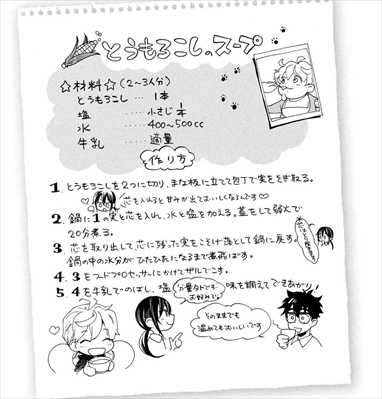 とうもろこしのスープ
☆材料☆(2~3人分)
とうもろこし……1本
塩……小さじ1/2
水……400~500cc
牛乳……適量
作り方
1 とうもろこしを2つに切り、まな板に立てて包丁で実をそぎ取る。
芯を入れると甘みが出ておいしくなるんです♡
2. 鍋に1の実と芯を入れ、水と塩を加える。蓋をして弱火で
20分煮る。
3 芯を取り出して芯に残った実をこそげ落として鍋に戻す。
鍋の中の水分がひたひたになるまで煮飛ばす。
4. 3をフードプロセッサーにかけてザルでこす。
5. 4を牛乳でのばし、塩(分量外)で味を調えてできあがり!
お好みで。
そのままでも
温めてもおいしいです